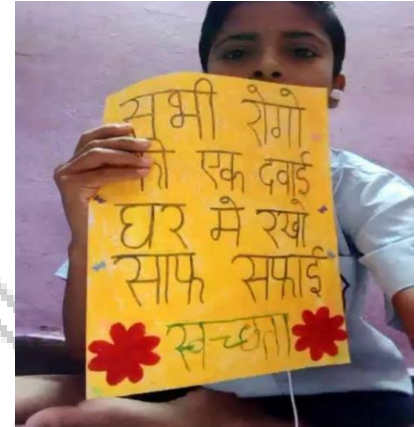 सभी रोगो
की एक दवाई
घर मे रखो
साफ सफाई
स्वच्छता